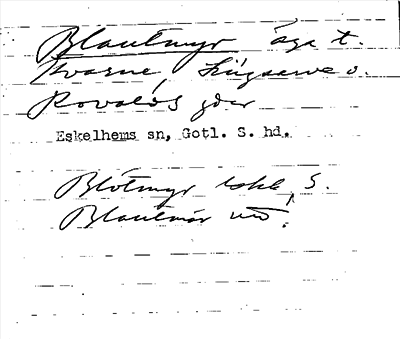 Blautmyr äga t.
Kvarne, Lingserve o.
Rovalds gdar
Eskelhems sn, Gotl. S. hd.
Blötmyr S.
Blautmör